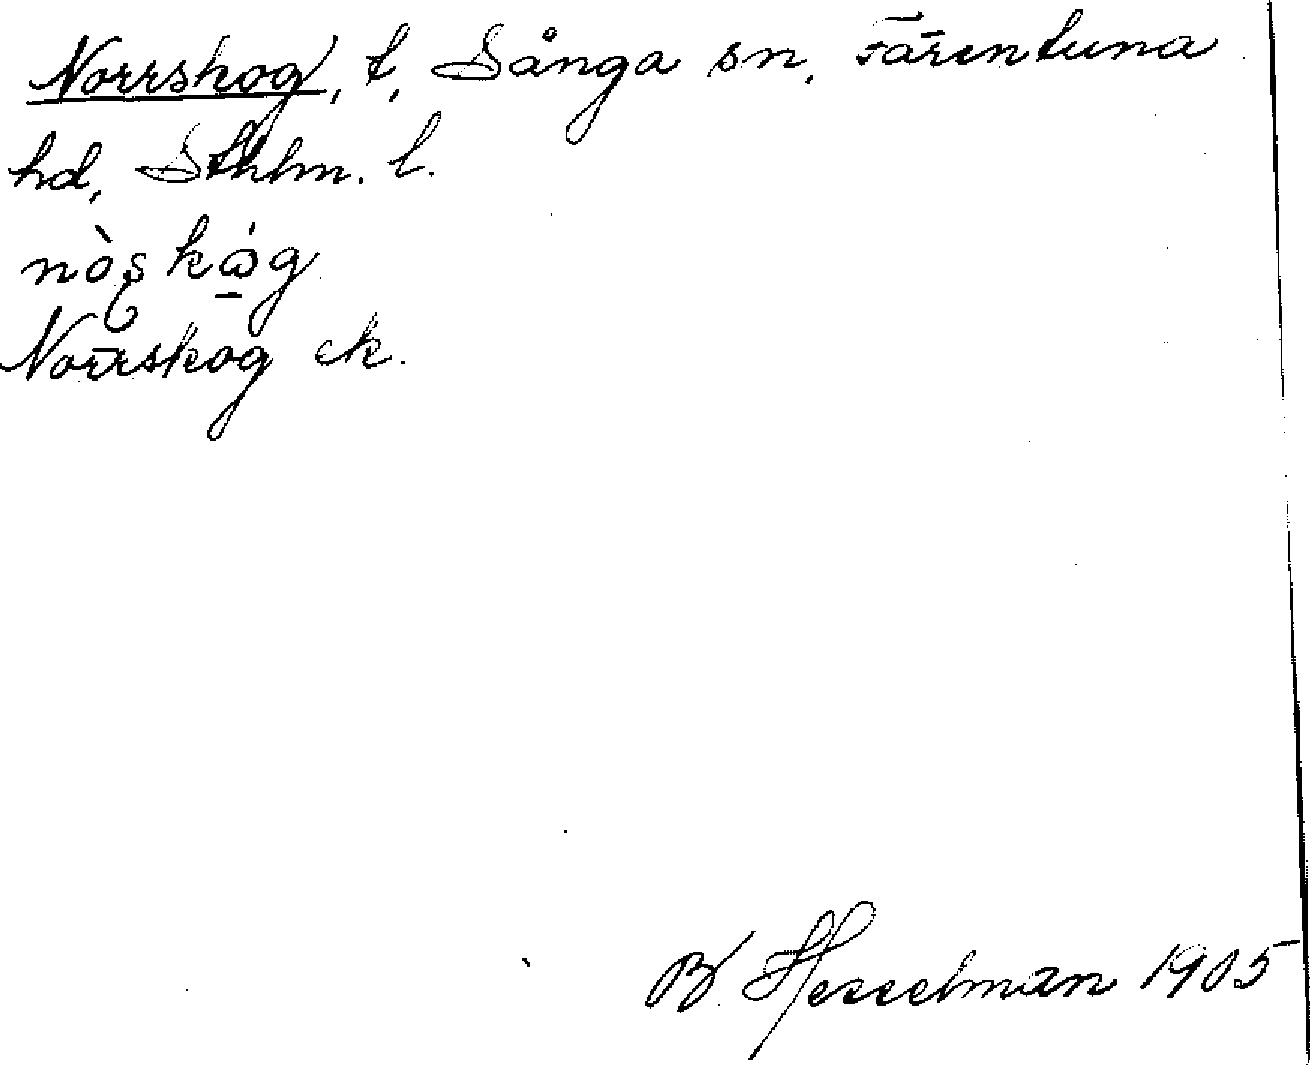 Norrskog, t, Sånga sn, Färentuna
hd, Sthlm. l.
nòʂkώ̲g
Norrskog ek.
B. Hesselman 1905